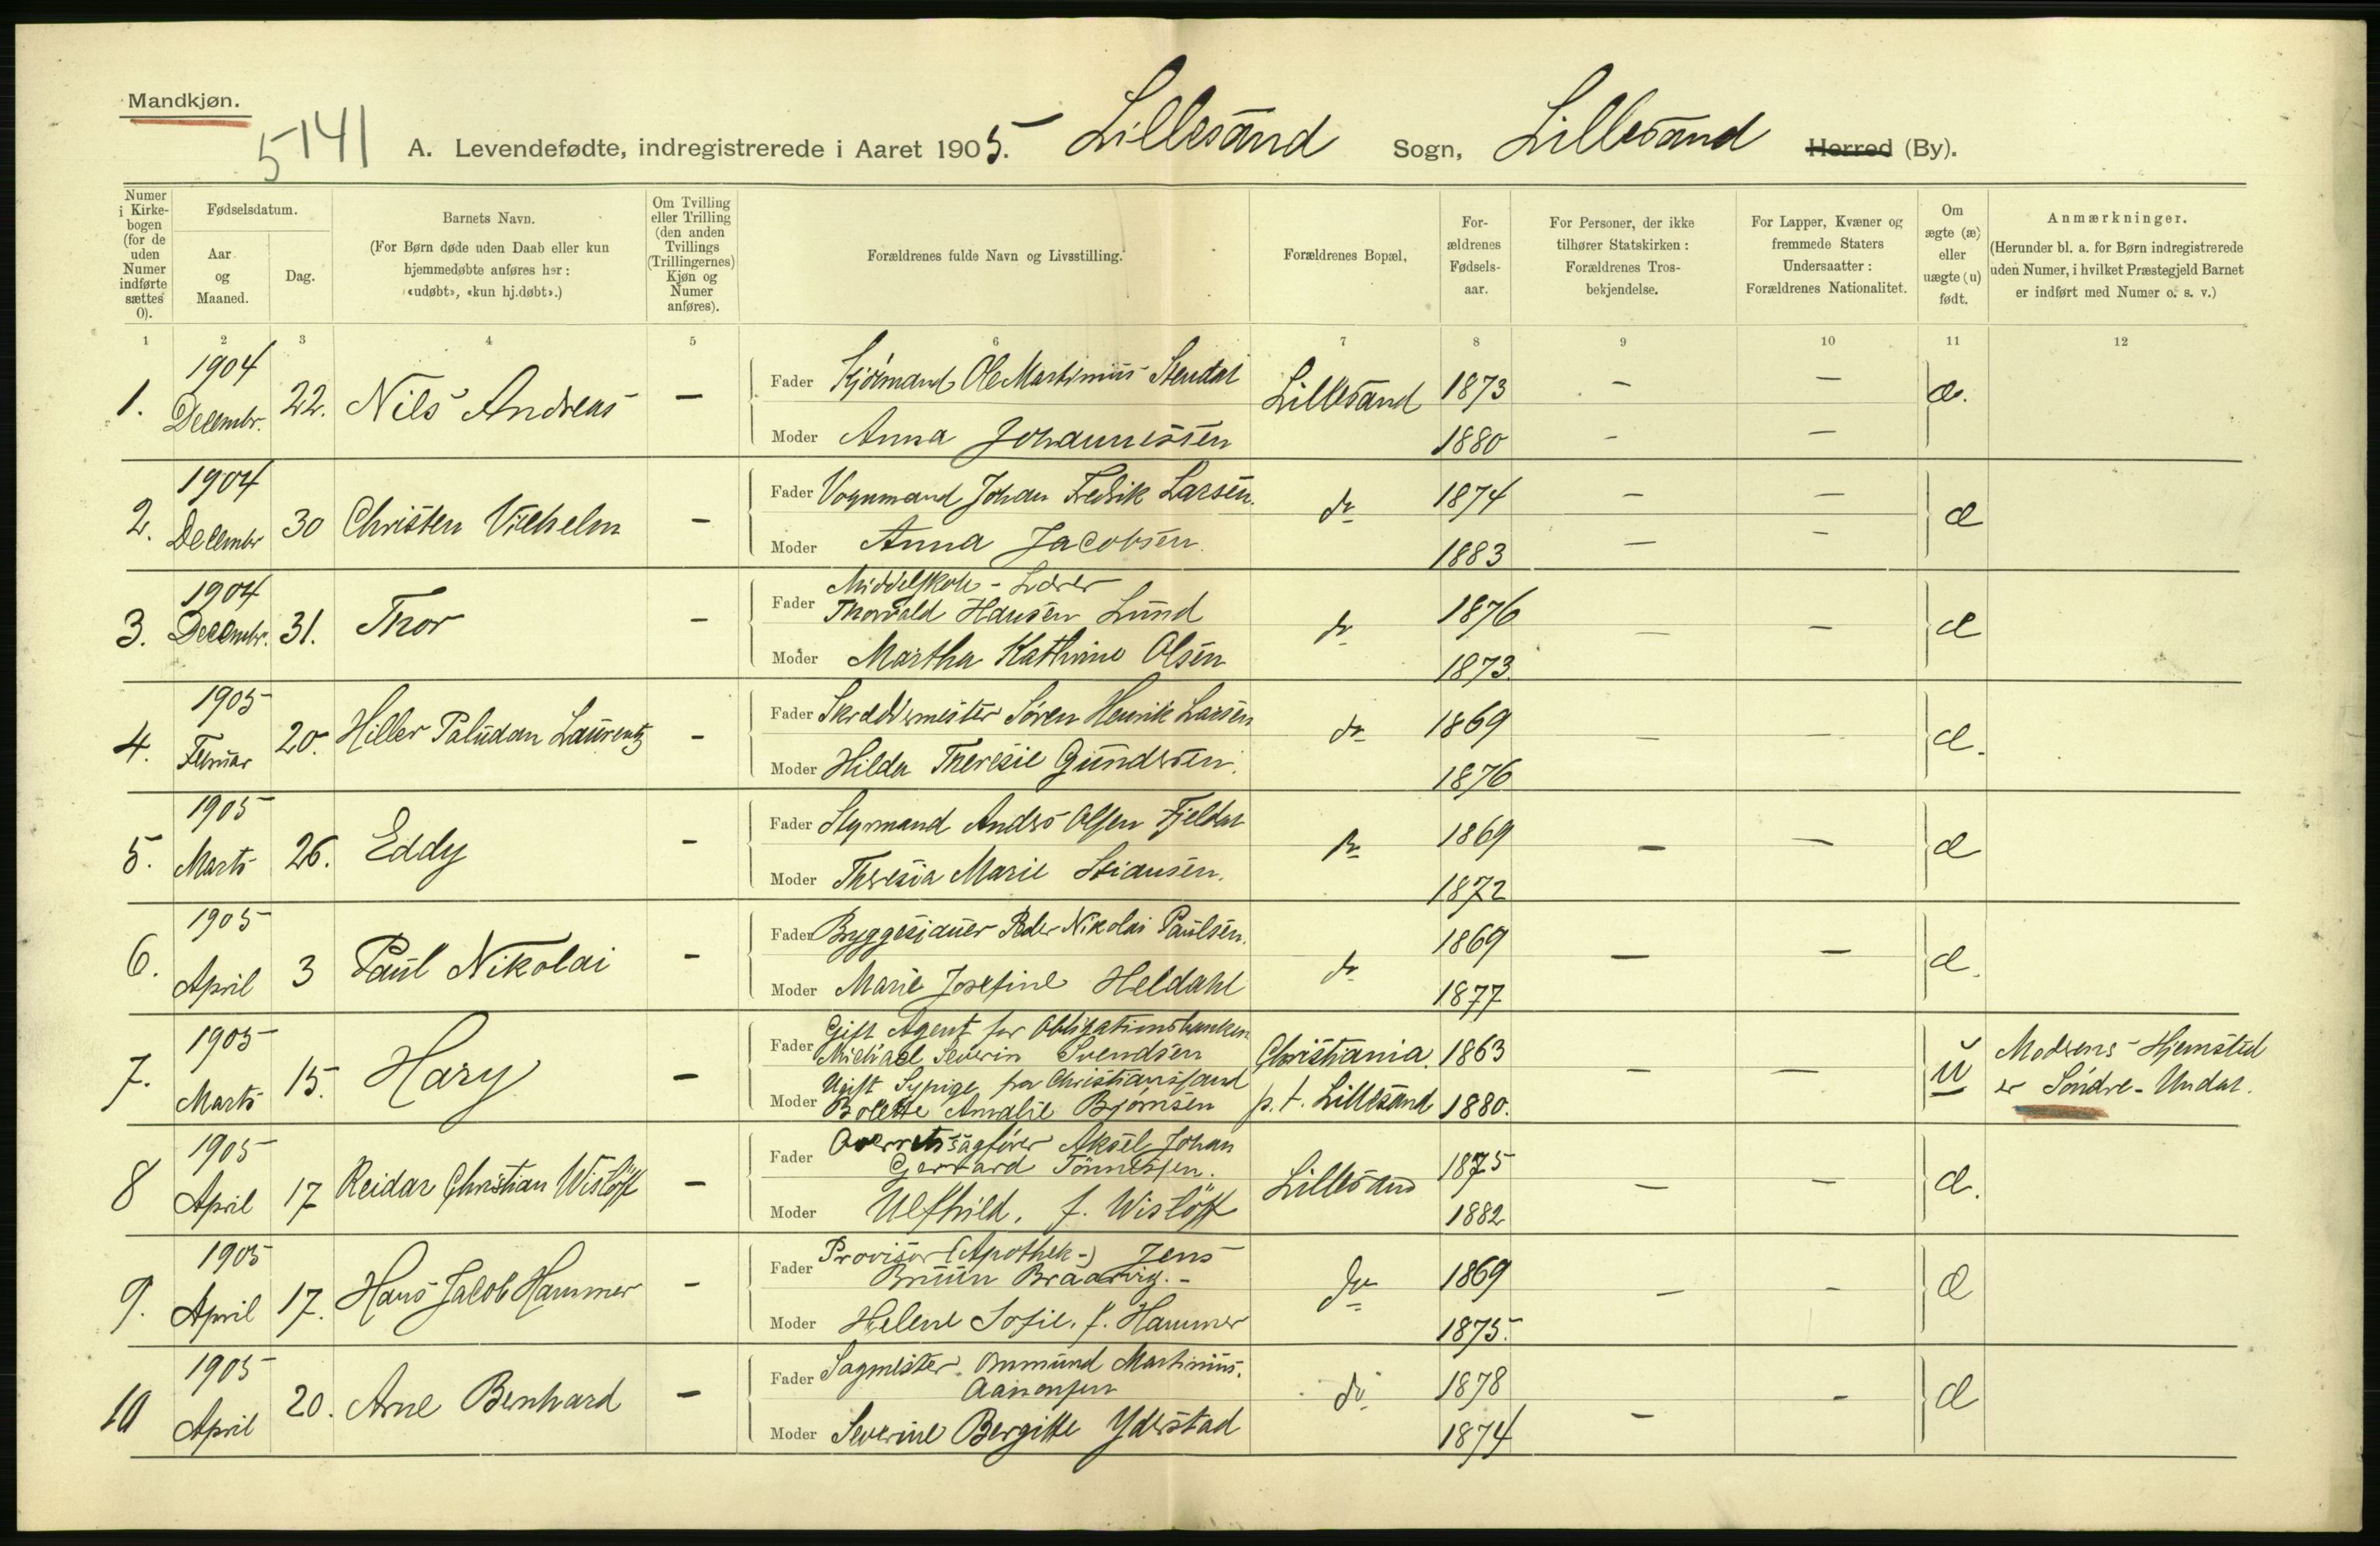 Mandkjøn.
5141
A. Levendefødte, indregistrerede i Aaret 1905. Lillesand Sogn, Lillesand Herred (By).
Numer i Kirkebogen (for de uden Numer indførte sættes 0).
Fødselsdatum.
Aar og Maaned.
Dag.
Barnets Navn.
(For Børn døde uden Daab eller kun hjemmedøbte anføres her: «udøbt», «kun hj.døbt».)
Om Tvilling eller Trilling (den anden Tvillings (Trillingernes) Kjøn og Numer anføres).
Forældrenes fulde Navn og Livsstilling.
Forældrenes Bopæl,
For-ældrenes Fødsels-aar.
For Personer, der ikke tilhører Statskirken: Forældrenes Tros-bekjendelse.
For Lapper, Kvæner og fremmede Staters Undersaatter: Forældrenes Nationalitet.
Om ægte (æ) eller uægte (u) født.
Anmærkninger.
(Herunder bl. a. for Børn indregistrerede uden Numer, i hvilket Præstegjeld Barnet er indført med Numer o. s. v.)
1 2 3 4 5 6 7 8 9 10 11 12
1. 1904 Decembr. 22. Nils Andreas - Fader Sjømand Ole Martinius Stendal Lillesand 1873 - - æ.
Moder Anna Johannessen 1880 - -
2. 1904 Decembr 30 Christen Vilhelm - Fader Vognmand Johan Fedrik Larsen. do 1874 - - æ
Moder Anna Jacobsen. 1883 - -
3. 1904 Decembr. 31. Thor - Fader Middelskole-Lærer
Thorvald Hansen Lund do 1876 - - æ
Moder Martha Kathrine Olsen 1873.
4. 1905 Februar 20. Hiller Paludan Laurentz - Fader Skræddermester Søren Henrik Larsen do 1869 - - æ.
Moder Hilda Theresie Gundersen. 1876
5. 1905 Marts 26. Eddy - Fader Styrmand Anders Olsen Fjeldal do 1869 - - æ
Moder Theresia Marie Stiansen. 1872
6. 1905 April 3 Paul Nikolai - Fader Bryggesjauer Peder Nikolai Paulsen. do 1869 - - æ.
Moder Marie Josefine Heldahl 1877
7. 1905 Marts 15. Hary - Fader Gift Agent for Obligationsbanken
Michael Severin Svendsen Christiania. 1863 - - u Moderens Hjemsted
Moder Ugift Sypige fra Christianssand
Bolette Amalie Bjørnsen p. t. Lillesand 1880. er Søndre-Undal.
8 1905 April 17 Reidar Christian Wisløff - Fader Overretssagfører Aksel Johan
Gerhard Tønnessen. Lillesand 1875 - - æ.
Moder Ulfhild, f. Wisløff 1882
9. 1905 April 17. Hans Jacob Hammer - Fader Provisor (Apothek-) Jens
Bruun Braarvig. - do 1869 - - æ
Moder Helene Sofie, f. Hammer 1875.
10 1905 April 20. Arne Bernhard - Fader Sagmester Ommund Martinius.
Aanonsen do 1878 - - æ
Moder Severine Bergitte Yderstad 1874